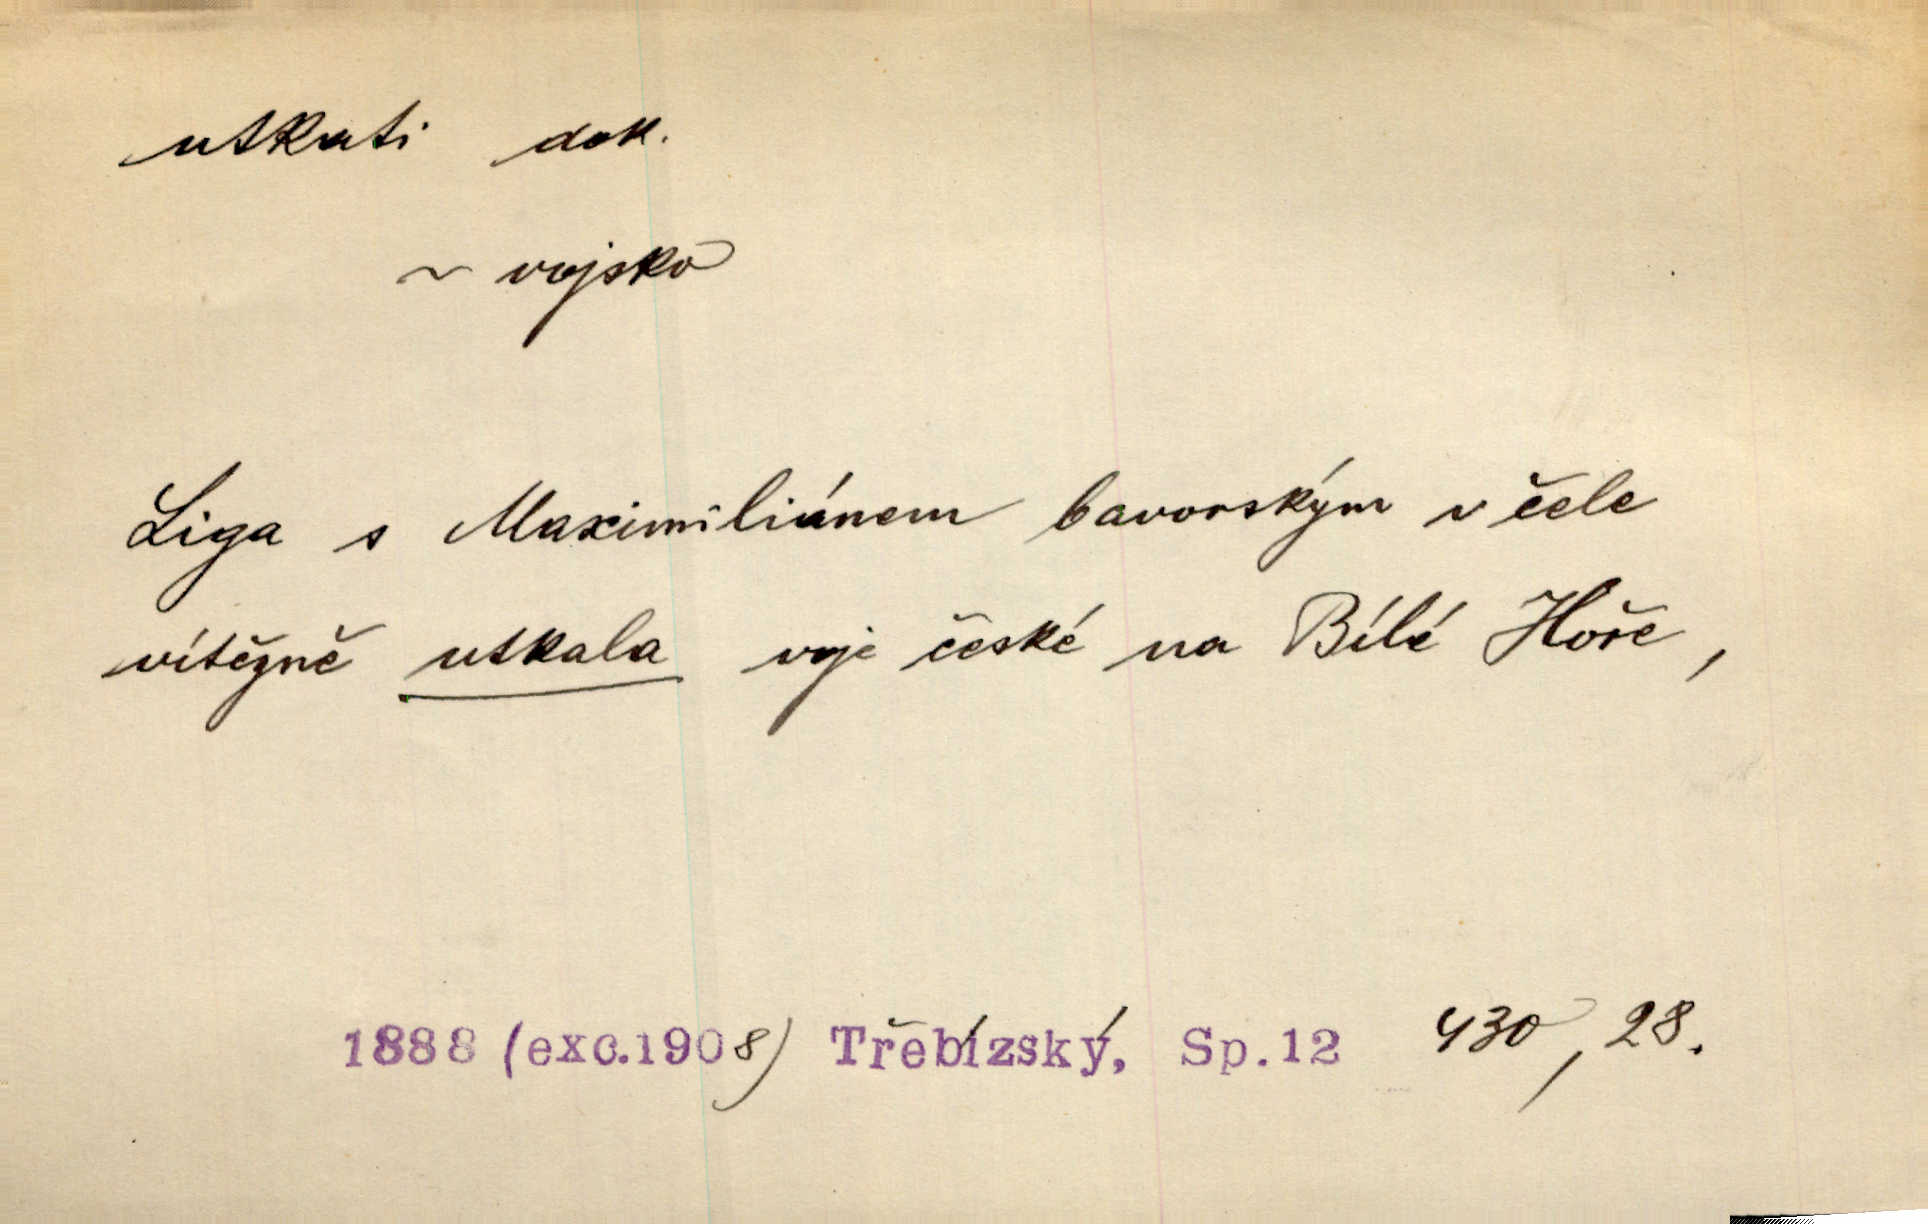 utkati dok.
~ vojsko
Liga s Maximiliánem bavorským v čele
vítězně utkala voje české na Bílé Hoře,
1888 (exc.1908) Třebízský, Sp.12 430, 28.